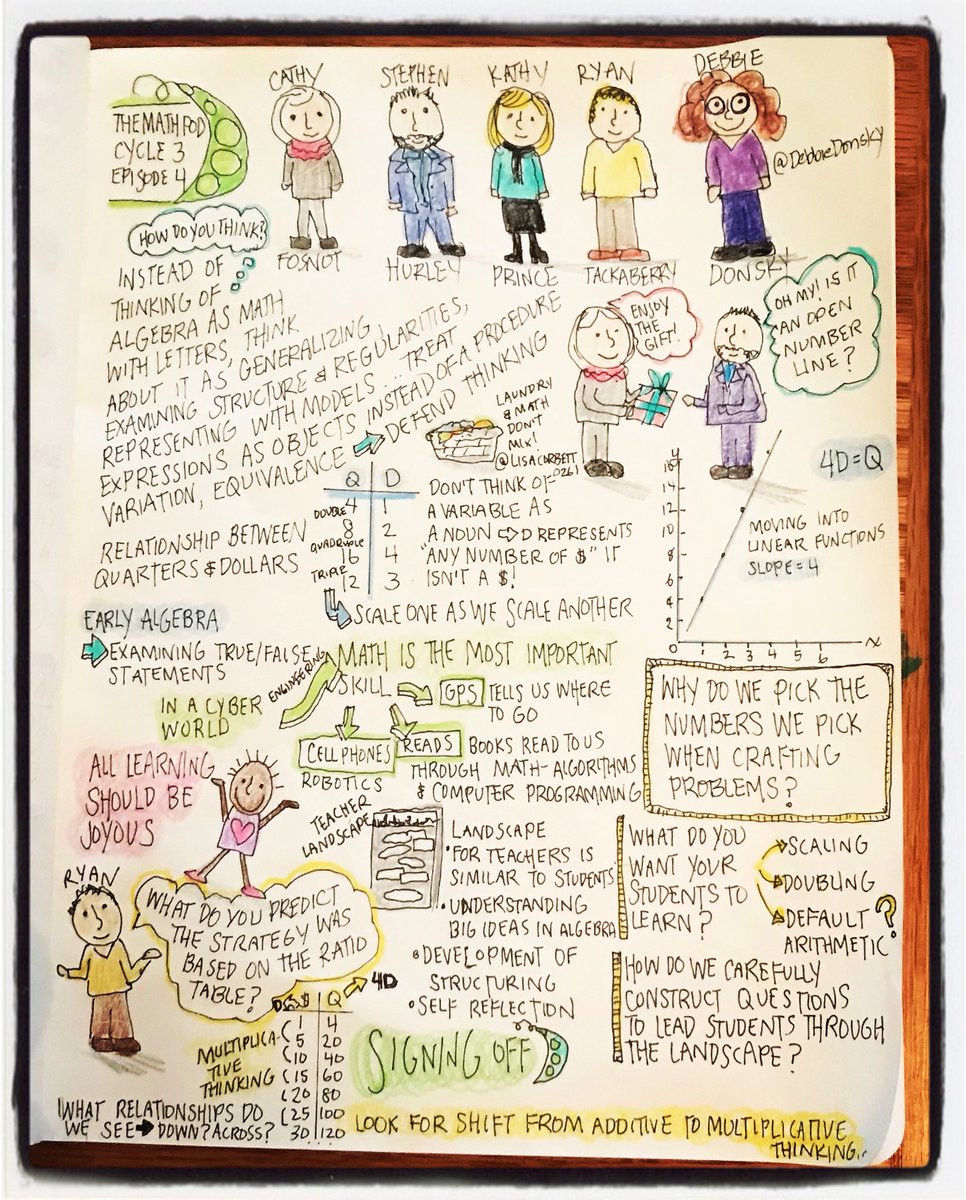 THE MATH POD
CYCLE 3
EPISODE 4
CATHY
FOSNOT
STEPHEN
HURLEY
KATHY
PRINCE
RYAN
TACKABERRY
DEBBIE
DONSKY
@DebbieDonsky
HOW DO YOU THINK?
INSTEAD OF
THINKING OF
ALGEBRA AS MATH
WITH LETTERS, THINK
ABOUT IT AS GENERALIZING
EXAMINING STRUCTURE & REGULARITIES,
REPRESENTING WITH MODELS... TREAT
EXPRESSIONS AS OBJECTS INSTEAD OF A PROCEDURE
VARIATION, EQUIVALENCE ➡ DEFEND THINKING
ENJOY
THE
GIFT!
OH MY! IS IT
AN OPEN
NUMBER
LINE?
LAUNDRY
& MATH
DON'T
MIX!
@LISACORBETT
0261
RELATIONSHIP BETWEEN
QUARTERS & DOLLARS
Q D
DOUBLE 4 1
8 2
QUADRUPLE 16 4
TRIPLE 12 3
DON'T THINK OF
A VARIABLE AS
A NOUN ⇨ D REPRESENTS
"ANY NUMBER OF $" IT
ISN'T A $!
SCALE ONE AS WE SCALE ANOTHER
16
14
12
10
8
6
4
2
1 2 3 4 5 6
4D=Q
MOVING INTO
LINEAR FUNCTIONS
SLOPE=4
EARLY ALGEBRA
EXAMINING TRUE/FALSE
STATEMENTS
IN A CYBER
WORLD
ENGINEERING
MATH IS THE MOST IMPORTANT
SKILL
GPS TELLS US WHERE
TO GO
CELLPHONES
ROBOTICS
READS BOOKS READ TO US
THROUGH MATH-ALGORITHMS
& COMPUTER PROGRAMMING
WHY DO WE PICK THE
NUMBERS WE PICK
WHEN CRAFTING
PROBLEMS?
ALL LEARNING
SHOULD BE
JOYOUS
TEACHER
LANDSCAPE
LANDSCAPE
•FOR TEACHERS IS
SIMILAR TO STUDENTS
•UNDERSTANDING
BIG IDEAS IN ALGEBRA
•DEVELOPMENT OF
STRUCTURING
•SELF REFLECTION
WHAT DO YOU
WANT YOUR
STUDENTS TO
LEARN?
SCALING
DOUBLING
DEFAULT ?
ARITHMETIC
HOW DO WE CAREFULLY
CONSTRUCT QUESTIONS
TO LEAD STUDENTS THROUGH
THE LANDSCAPE?
RYAN
WHAT DO YOU PREDICT
THE STRATEGY WAS
BASED ON THE RATIO
TABLE?
$ Q 4D
1 4
5 20
10 40
15 60
20 80
25 100
30 120
MULTIPLICA-
TIVE
THINKING
WHAT RELATIONSHIPS DO
WE SEE ➡ DOWN? ACROSS?
SIGNING OFF
LOOK FOR SHIFT FROM ADDITIVE TO MULTIPLICATIVE
THINKING..